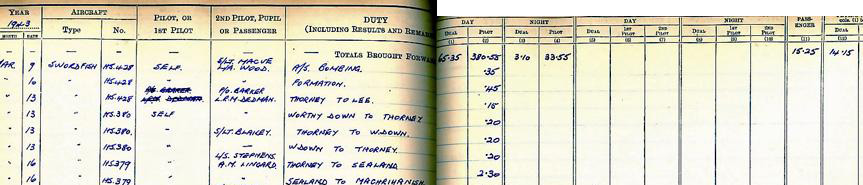 YEAR AIRCRAFT PILOT, OR 1ST PILOT 2ND PILOT, PUPIL OR PASSENGER DUTY (INCLUDING RESULTS AND REMAR
1943
MONTH DATE Type No.
DAY NIGHT DAY NIGHT PASS-ENGER
DUAL PILOT DUAL PILOT DUAL 1ST PILOT 2ND PILOT DUAL 1ST PILOT 2ND PILOT DUAL
(1) (2) (3) (4) (5) (6) (7) (8) (9) (10) (11) (12)
— — — — — — TOTALS BROUGHT FORWAR 65.35 380.55 3.10 33.55 15.25 14.15
MAR 9 SWORDFISH HS.428 SELF. S/LT. L/A. WOOD. A/S. BOMBING. .35
" 10 " HS.428 " " FORMATION. .45
" 13 " HS.428 P/O. BARKER L.R.M. DEDMAN. THORNEY TO LEE. .15
" 13 " HS.380 SELF " WORTHY DOWN TO THORNEY .20
" 13 " HS.380. " S/LT. BLAKEY. THORNEY TO W.DOWN. .20
" 13 " HS.380 " — W.DOWN TO THORNEY. .20
" 16 " HS.379 " L/S. STEPHENS. A.M. LINGARD. THORNEY TO SEALAND 2.30
" 16 " HS.379 " " SEALAND TO MACHRIHANISH